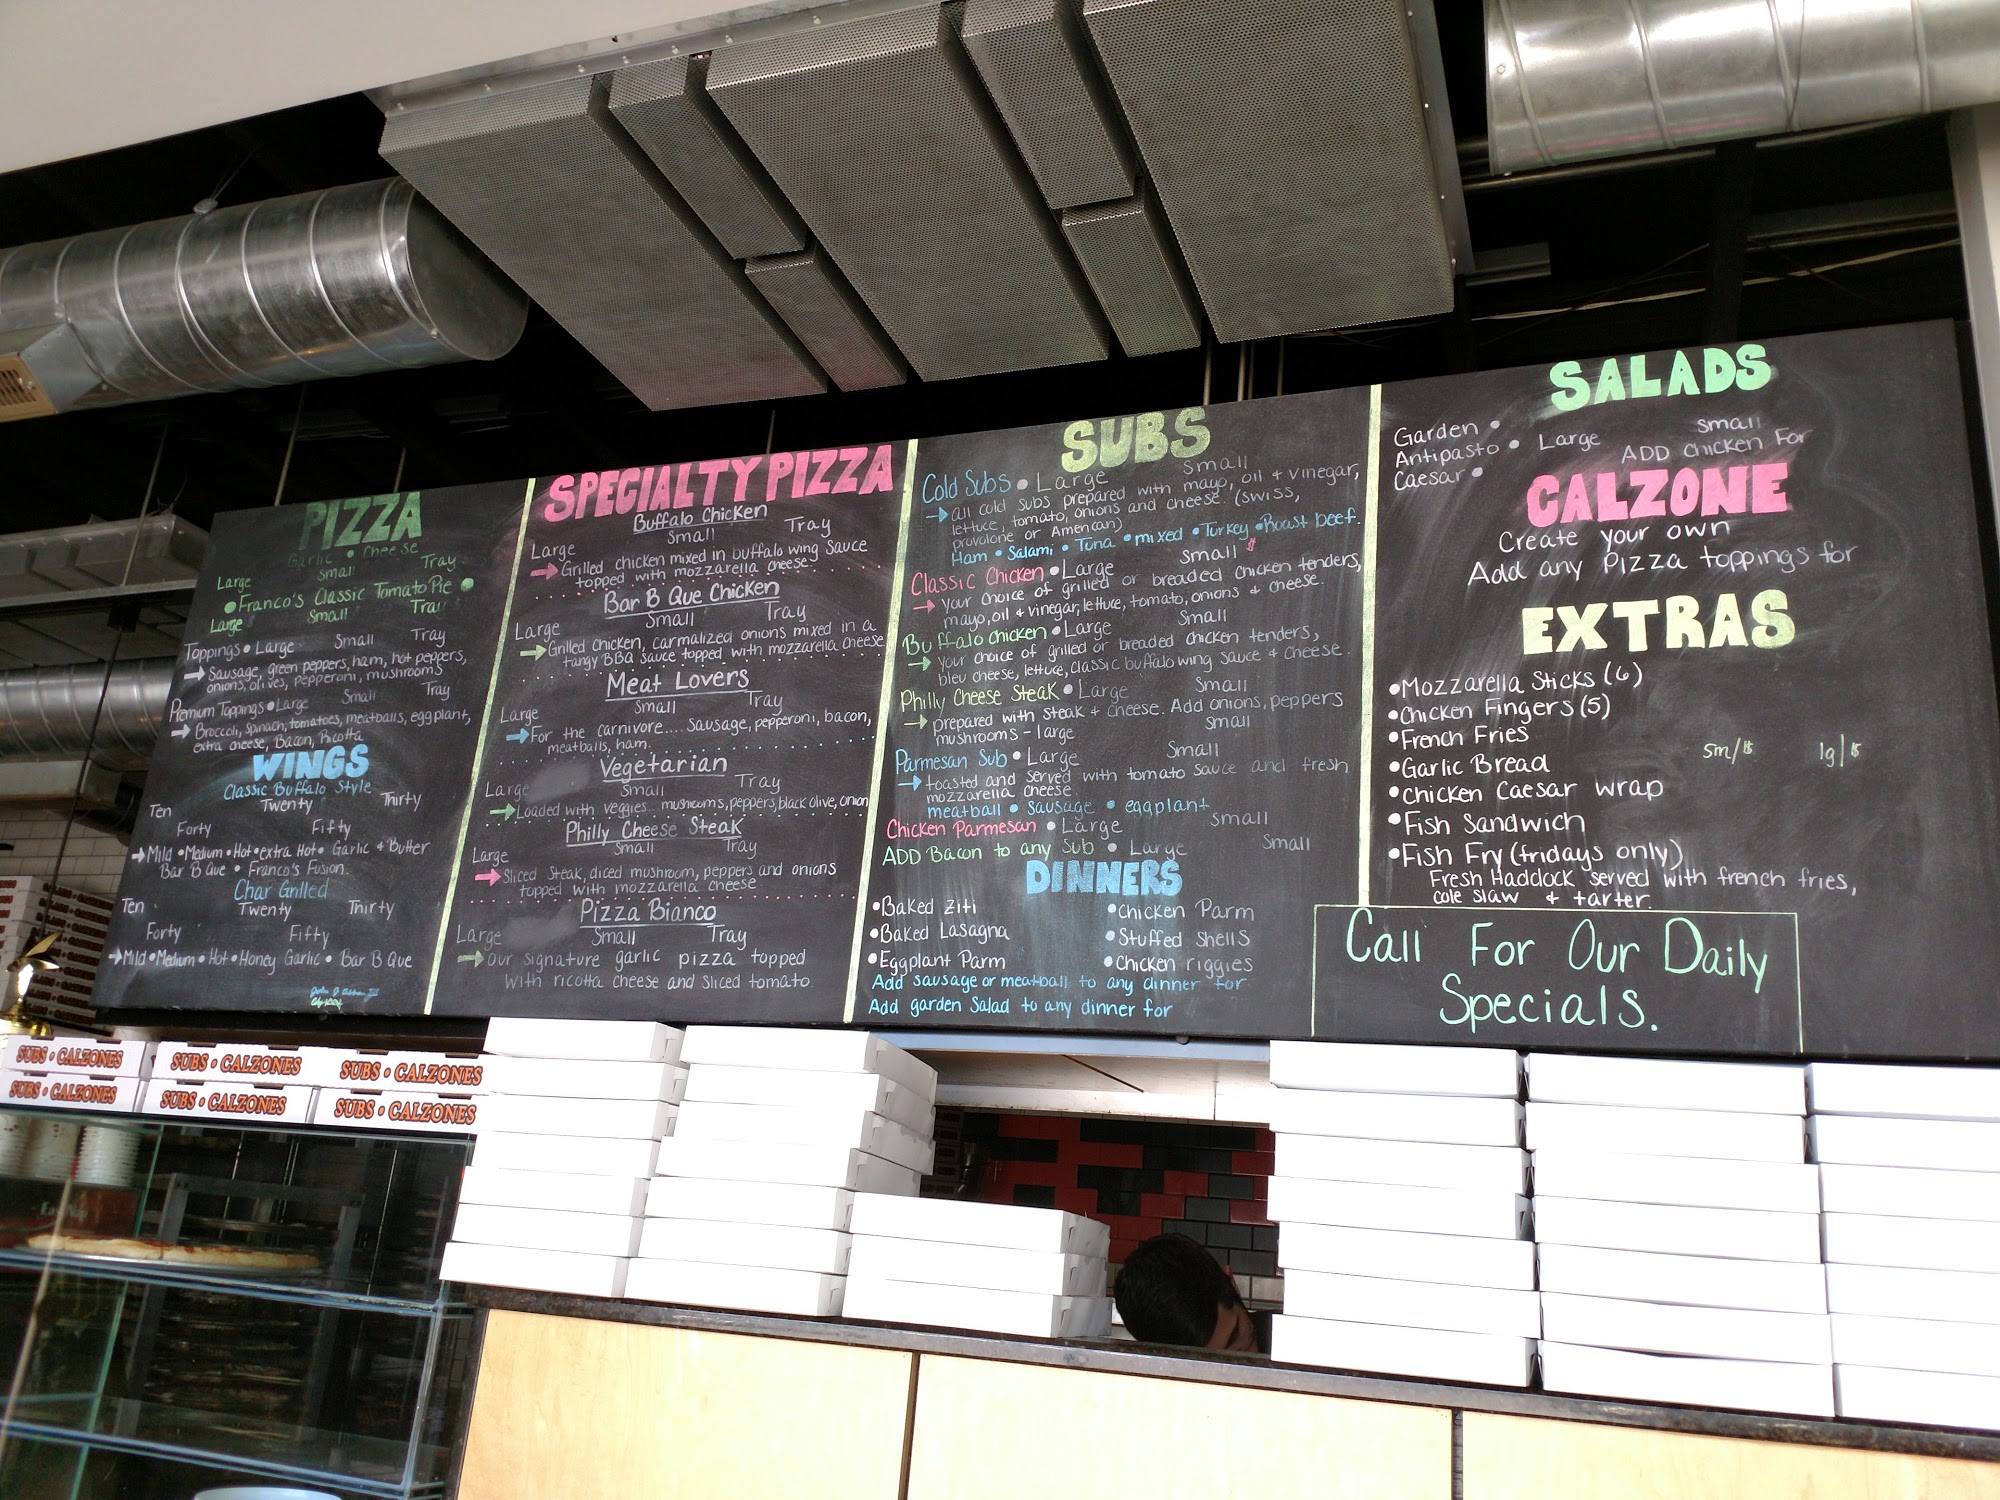 PIZZA
Garlic • Cheese
Large Small Tray
• Franco's Classic Tomato Pie •
Large Small Tray
Toppings • Large Small Tray
→ Sausage, green peppers, ham, hot peppers,
onions, olives, pepperoni, mushrooms
Premium Toppings • Large Small Tray
→ Broccoli, Spinach, tomatoes, meatballs, eggplant,
extra cheese, Bacon, Ricotta
WINGS
Classic Buffalo Style
Ten Twenty Thirty
Forty Fifty
→ Mild • Medium • Hot • extra Hot • Garlic & Butter
Bar B Que • Franco's Fusion.
Char Grilled
Ten Twenty Thirty
Forty Fifty
→ Mild • Medium • Hot • Honey Garlic • Bar B Que
SPECIALTY PIZZA
Buffalo Chicken
Large Small Tray
→ Grilled chicken mixed in buffalo wing sauce
topped with mozzarella cheese
Bar B Que Chicken
Large Small Tray
→ Grilled chicken, carmalized onions mixed in a
tangy BBQ sauce topped with mozzarella cheese
Meat Lovers
Large Small Tray
→ For the carnivore.... Sausage, pepperoni, bacon,
meatballs, ham.
Vegetarian
Large Small Tray
→ Loaded with veggies... mushrooms, peppers, black olive, onion
Philly Cheese Steak
Large Small Tray
→ Sliced steak, diced mushroom, peppers and onions
topped with mozzarella cheese
Pizza Bianco
Large Small Tray
→ our signature garlic pizza topped
with ricotta cheese and sliced tomato
SUBS
Cold Subs • Large Small
→ all cold subs prepared with mayo, oil & vinegar,
lettuce, tomato, onions and cheese. (swiss,
provolone or American)
Ham • Salami • Tuna • mixed • Turkey • Roast beef.
Classic Chicken • Large Small $
→ Your choice of grilled or breaded chicken tenders,
mayo, oil & vinegar, lettuce, tomato, onions & cheese.
Buffalo chicken • Large Small
→ Your choice of grilled or breaded chicken tenders,
bleu cheese, lettuce, classic buffalo wing sauce & cheese.
Philly Cheese Steak • Large Small
→ prepared with steak & cheese. Add onions, peppers
mushrooms - large Small
Parmesan Sub • Large Small
→ toasted and served with tomato sauce and fresh
mozzarella cheese.
meatball • sausage • eggplant
Chicken Parmesan • Large Small
ADD Bacon to any sub • Large Small
DINNERS
• Baked Ziti
• Baked Lasagna
• Eggplant Parm
• Chicken Parm
• Stuffed Shells
• Chicken riggies
Add sausage or meatball to any dinner for
Add garden Salad to any dinner for
SALADS
Garden •
Antipasto • Large Small
Caesar • ADD Chicken For
CALZONE
Create your own
Add any Pizza toppings for
EXTRAS
• Mozzarella Sticks (6)
• Chicken Fingers (5)
• French Fries
• Garlic Bread sm/$ lg/$
• Chicken Caesar wrap
• Fish Sandwich
• Fish Fry (fridays only)
Fresh Haddock served with french fries,
cole slaw & tarter.
Call For Our Daily
Specials.
SUBS • CALZONES SUBS • CALZONES SUBS • CALZONES
SUBS • CALZONES SUBS • CALZONES SUBS • CALZONES